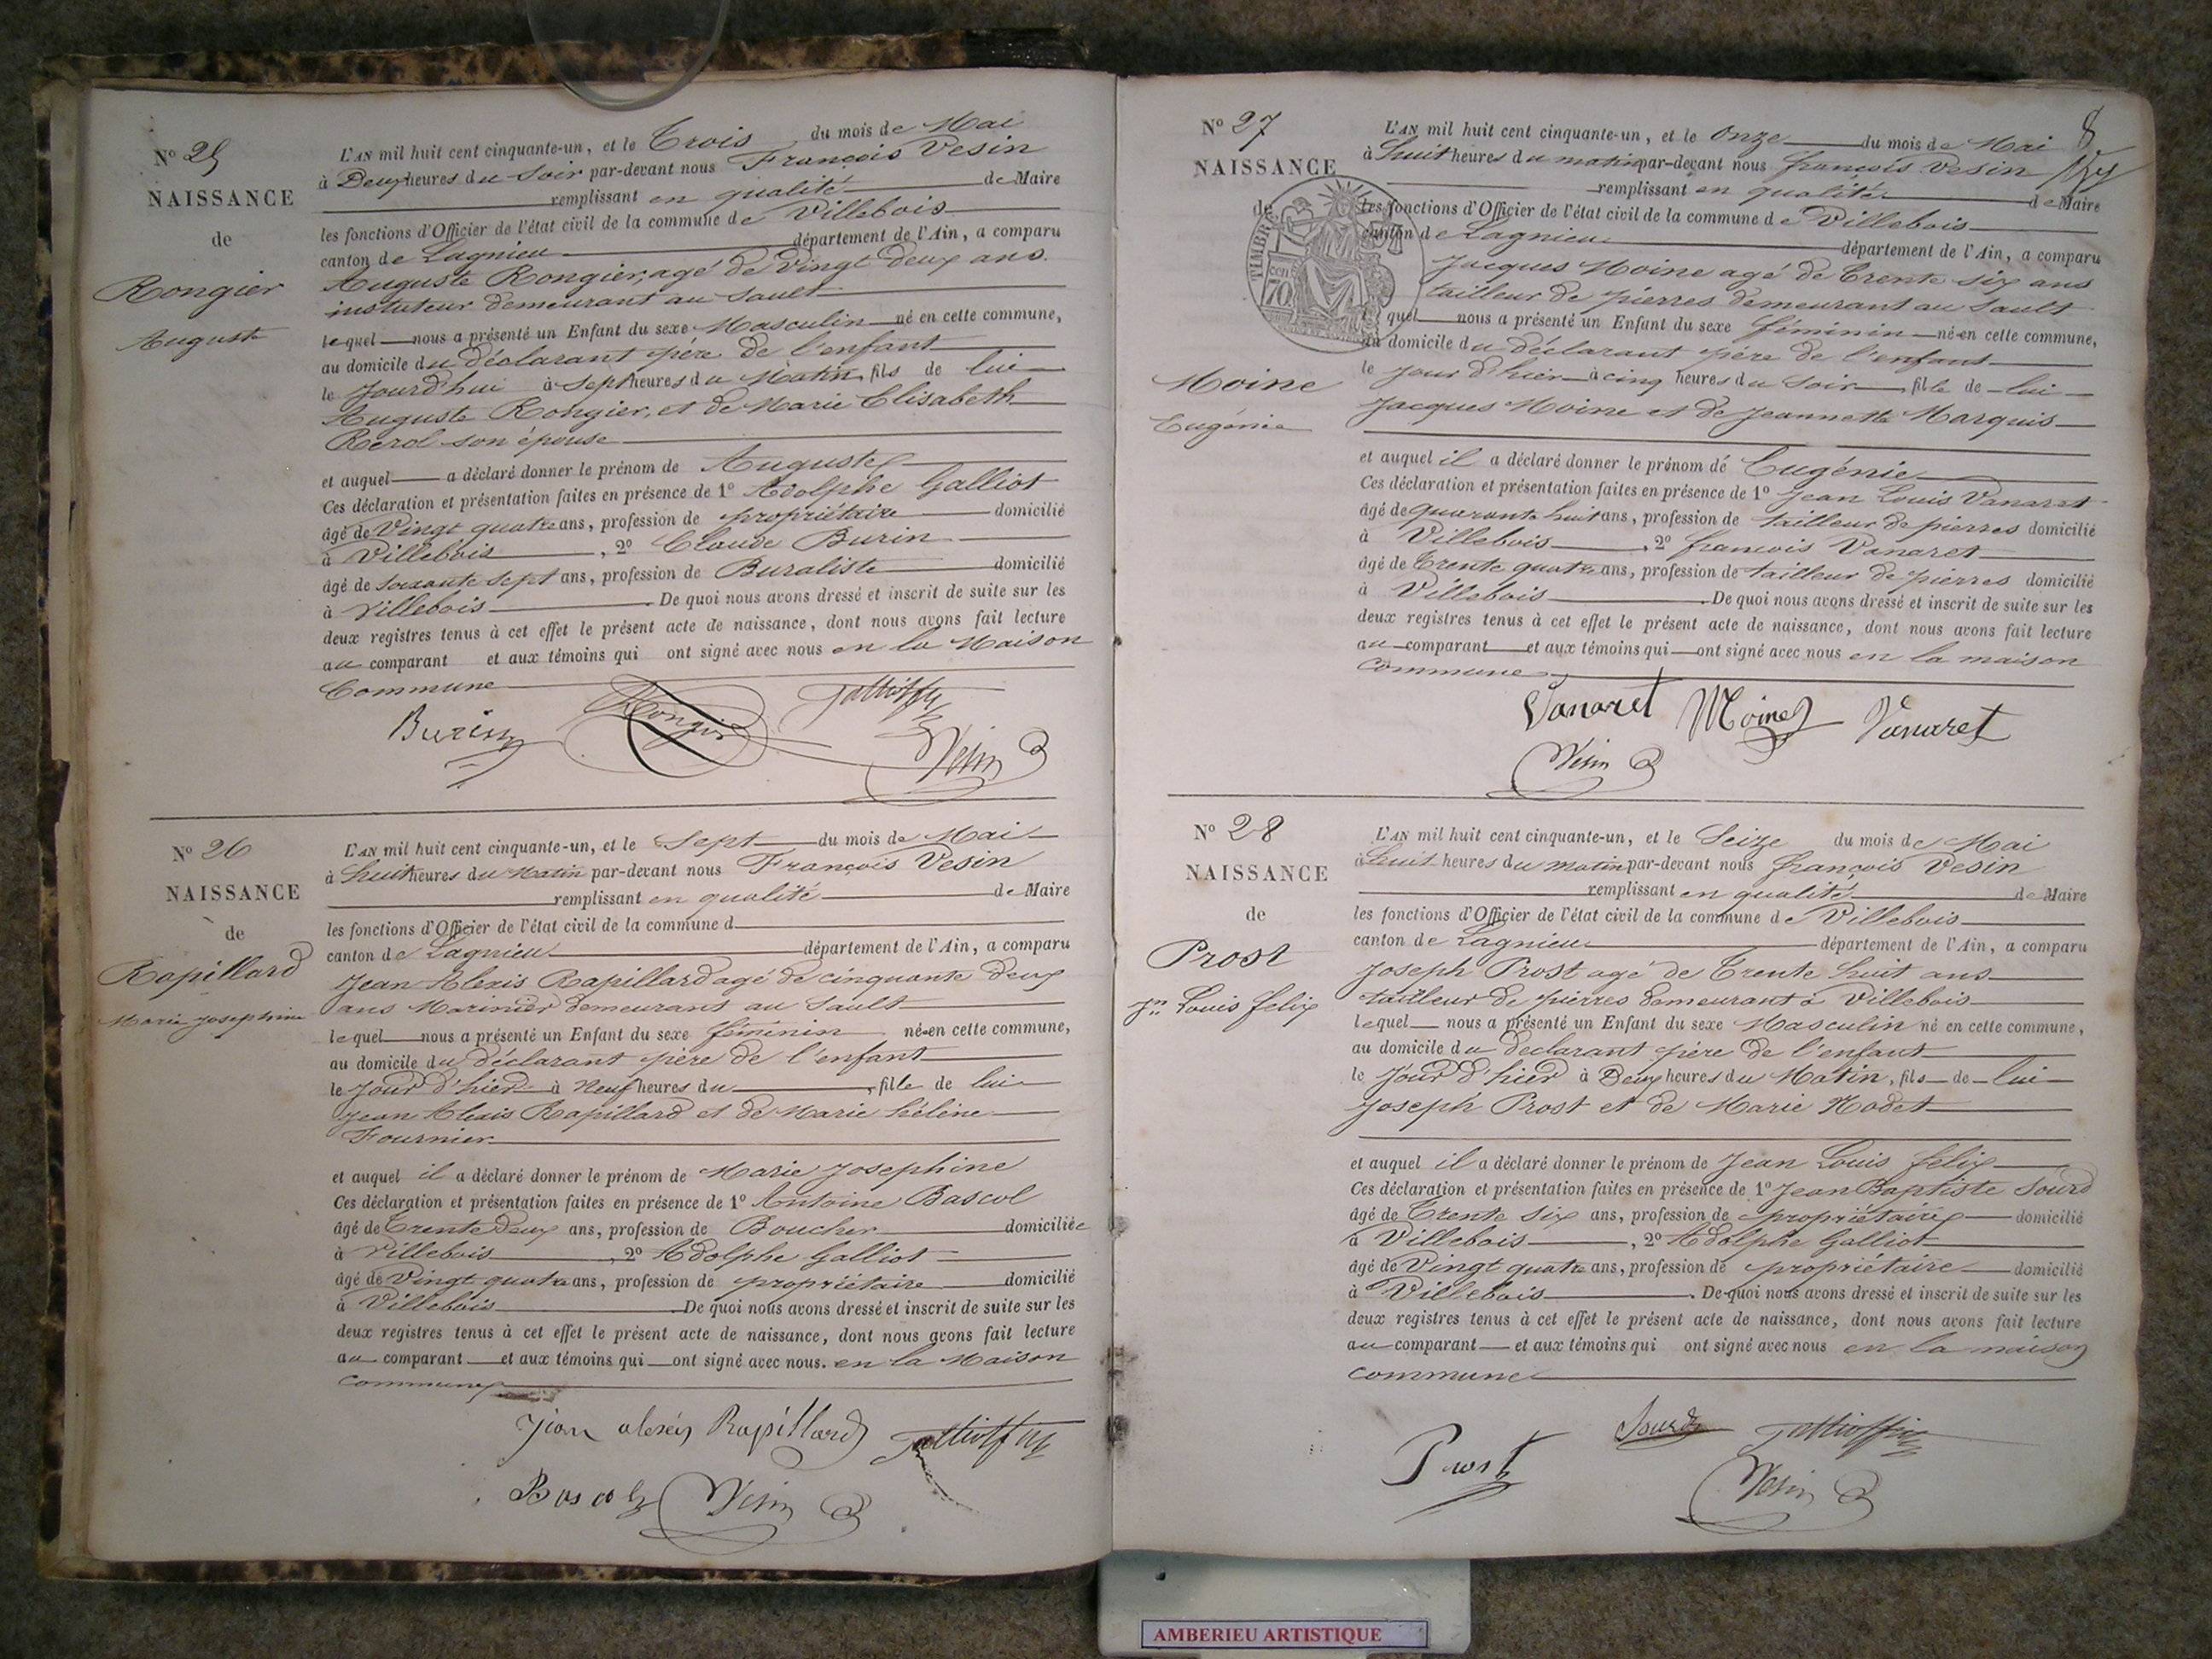 N° 25
NAISSANCE
de
Rongier
Auguste
L'AN mil huit cent cinquante-un, et le Trois du mois de Mai
à Deux heures du Soir par-devant nous François Vesin
remplissant en qualité de Maire
les fonctions d'Officier de l'état civil de la commune de Villebois
canton de Lagnieu département de l'Ain, a comparu
Auguste Rongier, agé de Vingt deux ans
instituteur demeurant au Sault
lequel nous a présenté un Enfant du sexe Masculin né en cette commune,
au domicile du déclarant père de l'enfant
le Jourd'hui à Sept heures du Matin fils de lui
Auguste Rongier, et de Marie Elisabeth
son épouse
et auquel a déclaré donner le prénom de Auguste
Ces déclaration et présentation faites en présence de 1° Adolphe Galliot
âgé de Vingt quatre ans, profession de propriétaire domicilié
à Villebois, 2° Claude Burin
âgé de soixante sept ans, profession de Buraliste domicilié
à Villebois. De quoi nous avons dressé et inscrit de suite sur les
deux registres tenus à cet effet le présent acte de naissance, dont nous avons fait lecture
au comparant et aux témoins qui ont signé avec nous en la Maison
Commune
Burin Rongier Galliot
Vesin
N° 26
NAISSANCE
de
Rapillard
Marie Josephine
L'AN mil huit cent cinquante-un, et le Sept du mois de Mai
à huit heures du Matin par-devant nous François Vesin
remplissant en qualité de Maire
les fonctions d'Officier de l'état civil de la commune d
canton de Lagnieu département de l'Ain, a comparu
Jean Alexis Rapillard agé de cinquante deux
ans Marinier demeurant au Sault
lequel nous a présenté un Enfant du sexe féminin né en cette commune,
au domicile du déclarant père de l'enfant
le Jour d'hier à Neuf heures du, fille de lui
Jean Alexis Rapillard et de Marie hélène
Fournier
et auquel il a déclaré donner le prénom de Marie Josephine
Ces déclaration et présentation faites en présence de 1° Antoine Bascol
âgé de Trente deux ans, profession de Boucher domiciliée
à Villebois, 2° Adolphe Galliot
âgé de Vingt quatre ans, profession de propriétaire domicilié
à Villebois. De quoi nous avons dressé et inscrit de suite sur les
deux registres tenus à cet effet le présent acte de naissance, dont nous avons fait lecture
au comparant et aux témoins qui ont signé avec nous. en la Maison
commune
Jean alexis Rapillard Galliot
Bascol Vesin
8
N° 27
NAISSANCE
de
Moine
Eugénie
TIMBRE
70
L'AN mil huit cent cinquante-un, et le Onze du mois de Mai
à huit heures du matin par-devant nous françois Vesin
remplissant en qualité de Maire
les fonctions d'Officier de l'état civil de la commune de Villebois
canton de Lagnieu département de l'Ain, a comparu
Jacques Moine agé de Trente six ans
tailleur de pierres demeurant au Sault
lequel nous a présenté un Enfant du sexe féminin né en cette commune,
au domicile du déclarant père de l'enfant
le jour d'hier à cinq heures du Soir fille de lui
Jacques Moine et de Jeannette Marquis
et auquel il a déclaré donner le prénom de Eugénie
Ces déclaration et présentation faites en présence de 1° Jean Louis Vanaret
âgé de quarante huit ans, profession de tailleur de pierres domicilié
à Villebois, 2° françois Vanaret
âgé de Trente quatre ans, profession de tailleur de pierres domicilié
à Villebois. De quoi nous avons dressé et inscrit de suite sur les
deux registres tenus à cet effet le présent acte de naissance, dont nous avons fait lecture
au comparant et aux témoins qui ont signé avec nous en la maison
commune
Vanaret Moine Vanaret
Vesin
N° 28
NAISSANCE
de
Prost
Jn Louis felix
L'AN mil huit cent cinquante-un, et le Seize du mois de Mai
à huit heures du matin par-devant nous françois Vesin
remplissant en qualité de Maire
les fonctions d'Officier de l'état civil de la commune de Villebois
canton de Lagnieu département de l'Ain, a comparu
Joseph Prost agé de Trente huit ans
tailleur de pierres demeurant à Villebois
lequel nous a présenté un Enfant du sexe Masculin né en cette commune,
au domicile du declarant père de l'enfant
le Jour d'hier à Deux heures du Matin, fils de lui
Joseph Prost et de Marie Nodet
et auquel il a déclaré donner le prénom de Jean Louis felix
Ces déclaration et présentation faites en présence de 1° Jean Baptiste Sourd
âgé de Trente Six ans, profession de propriétaire domicilié
à Villebois, 2° Adolphe Galliot
âgé de Vingt quatre ans, profession de propriétaire domicilié
à Villebois. De quoi nous avons dressé et inscrit de suite sur les
deux registres tenus à cet effet le présent acte de naissance, dont nous avons fait lecture
au comparant et aux témoins qui ont signé avec nous en la maison
commune
Prost Sourd Galliot
Vesin
AMBERIEU ARTISTIQUE